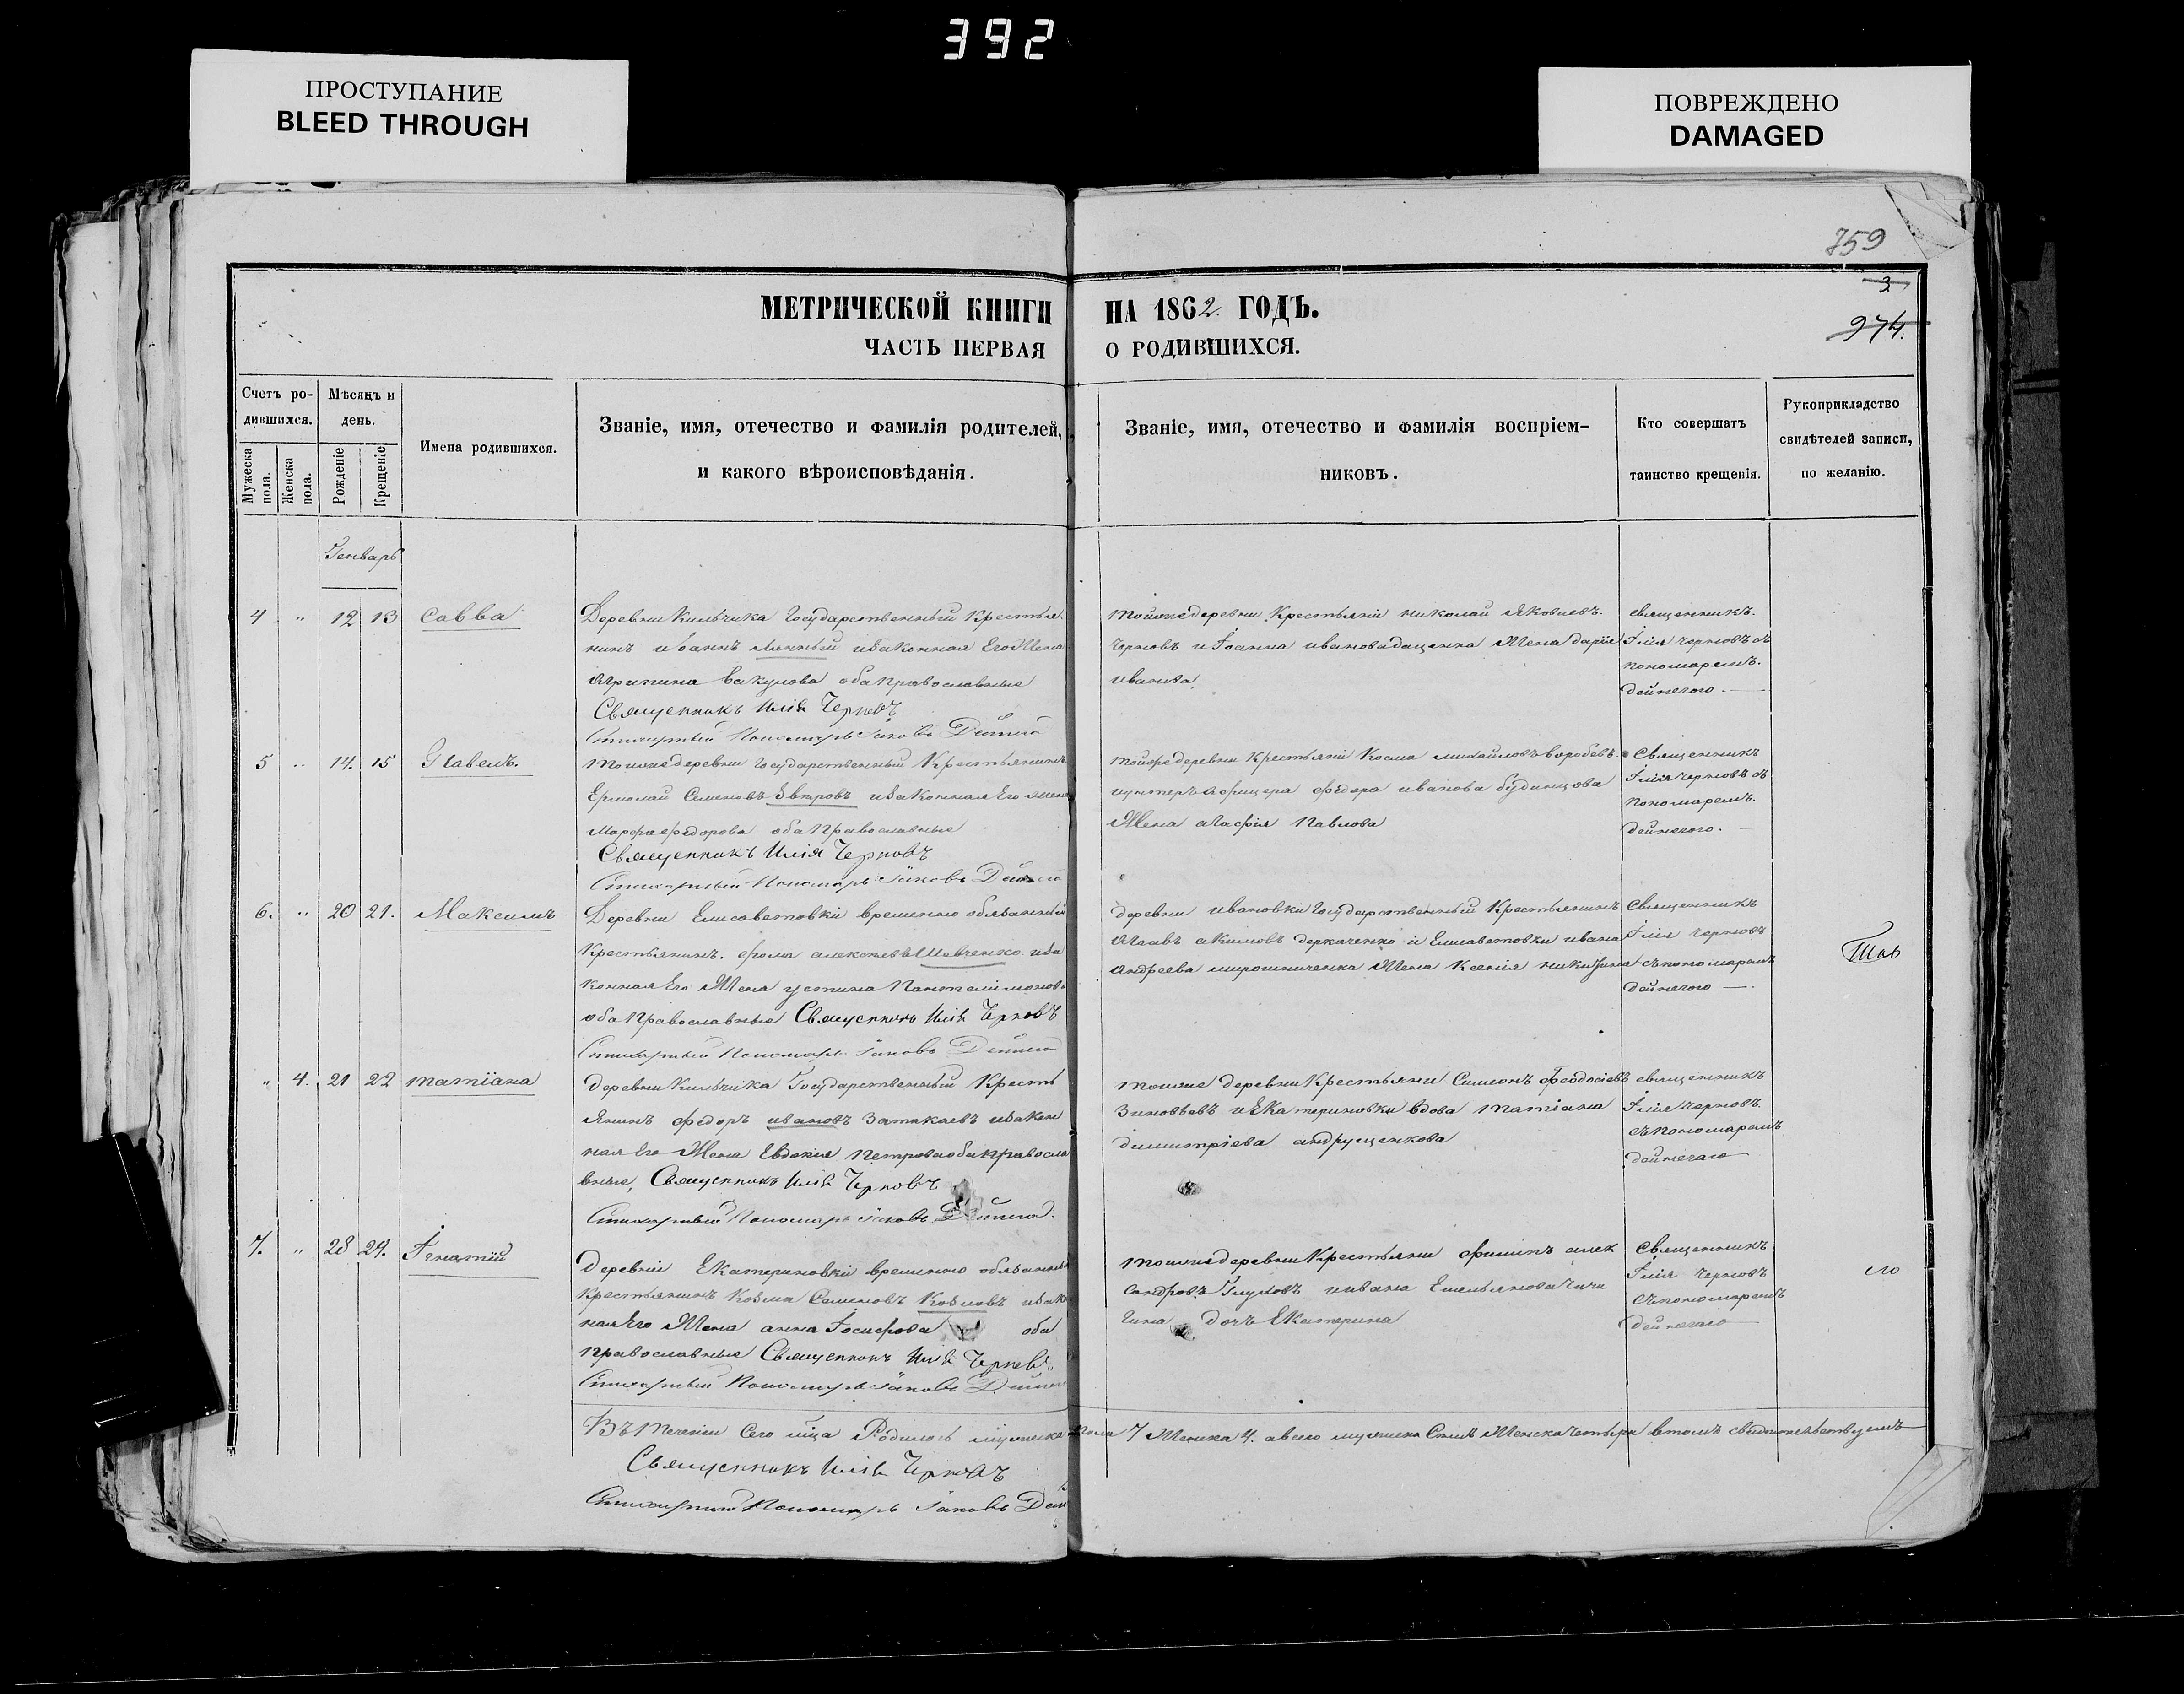 392
ПРОСТУПАНИЕ
BLEED THROUGH
ПОВРЕЖДЕНО
DAMAGED
759
3
974.
МЕТРИЧЕСКОЙ КНИГИ НА 1862 ГОДЪ.
ЧАСТЬ ПЕРВАЯ О РОДИВШИХСЯ.
Счетъ ро-
дившихся.
Мужеска пола.
Женска пола.
Мѣсяцъ и
день.
Рожденіе
Крещеніе
Имена родившихся.
Званіе, имя, отечество и фамилія родителей,
и какого вѣроисповѣданія.
Званіе, имя, отечество и фамилія воспріем-
никовъ.
Кто совершатъ
таинство крещенія.
Рукоприкладство
свидѣтелей записи,
по желанію.
Генварь
4 " 12 13 Савва
Деревни Кильчика Государственный Крестья
нинъ Иоаннъ изаконная Его Жена
Агрипина Вакулова оба Православные
Священникъ Илія Черновъ
Стихарный Пономарь Іаковъ
тойже деревни Крестьяни Николай Яковлевъ
Черновъ и Іоанна иванова Жена Дарія
иванова
священникъ
Ілія Черновъ съ
пономаремъ
дейнегою
5 " 14 15 Павелъ.
тойже деревни Государственный Крестьянинъ
Ермолай Семеновъ изаконная Его Жена
Марфа Федорова оба Православные
Священникъ Илія Черновъ
Стихарный Пономарь Іаковъ
тойже деревни Крестьяни Косма михайловъ воробевъ
иунтеръ Афицера федора иванова
Жена агафія Павлова
Священникъ
Ілія Черновъ съ
Пономаремъ.
дейнегою.
6. " 20 21. Максимъ
Деревни Елисаветовки временно обязанный
Крестьянинъ. фома алексеевъ Шевченко иза
конная Его Жена устина Пантелимонова
оба Православные Священникъ Илія Черновъ
Стихарный Пономарь Іаковъ
деревни ивановки Государственный Крестьянинъ
акимовъ деркаченко и Елисаветовки ивана
Андреева мирошниченка Жена Ксенія никитина
Священникъ
Ілія Черновъ
съ пономаремъ
дейнегою
" 4. 21 22 татіана
деревни Кильчика Государственный Кресть
янинъ федоръ ивановъ изакон
ная Его Жена Евдокия Петрова оба правосла
вные, Священникъ Илія Черновъ
Стихарный Пономарь Іаковъ
тоиже деревни Крестьяни Симеонъ Феодосіевъ
Зиновьевъ и Екатериновки вдова татіана
димитріева андрущенкова
священникъ
Ілія Черновъ
съ пономаремъ
дейнегаю
7. " 23 24. Ігнатій
деревни Екатериновки временно обязанный
Крестьянинъ Козма Семеновъ Козловъ изако
ная Его Жена анна Іосифова оба
Православные Священникъ Илія Черновъ
Стихарный Пономарь Іаковъ
тоиже деревни Крестьяни филипъ алек
сандровъ и ивана Емельянова
дочь Екатерина
Священникъ
Ілія Черновъ
съ пономаремъ
дейнегаю
Въ течении Сего мца Родилось мужеска пола 7 Женска 4. а всего мужеска Семь Женска Четыре втомъ свидетельствуемъ
Священникъ Илія Черновъ
Стихарный Пономарь Іаковъ